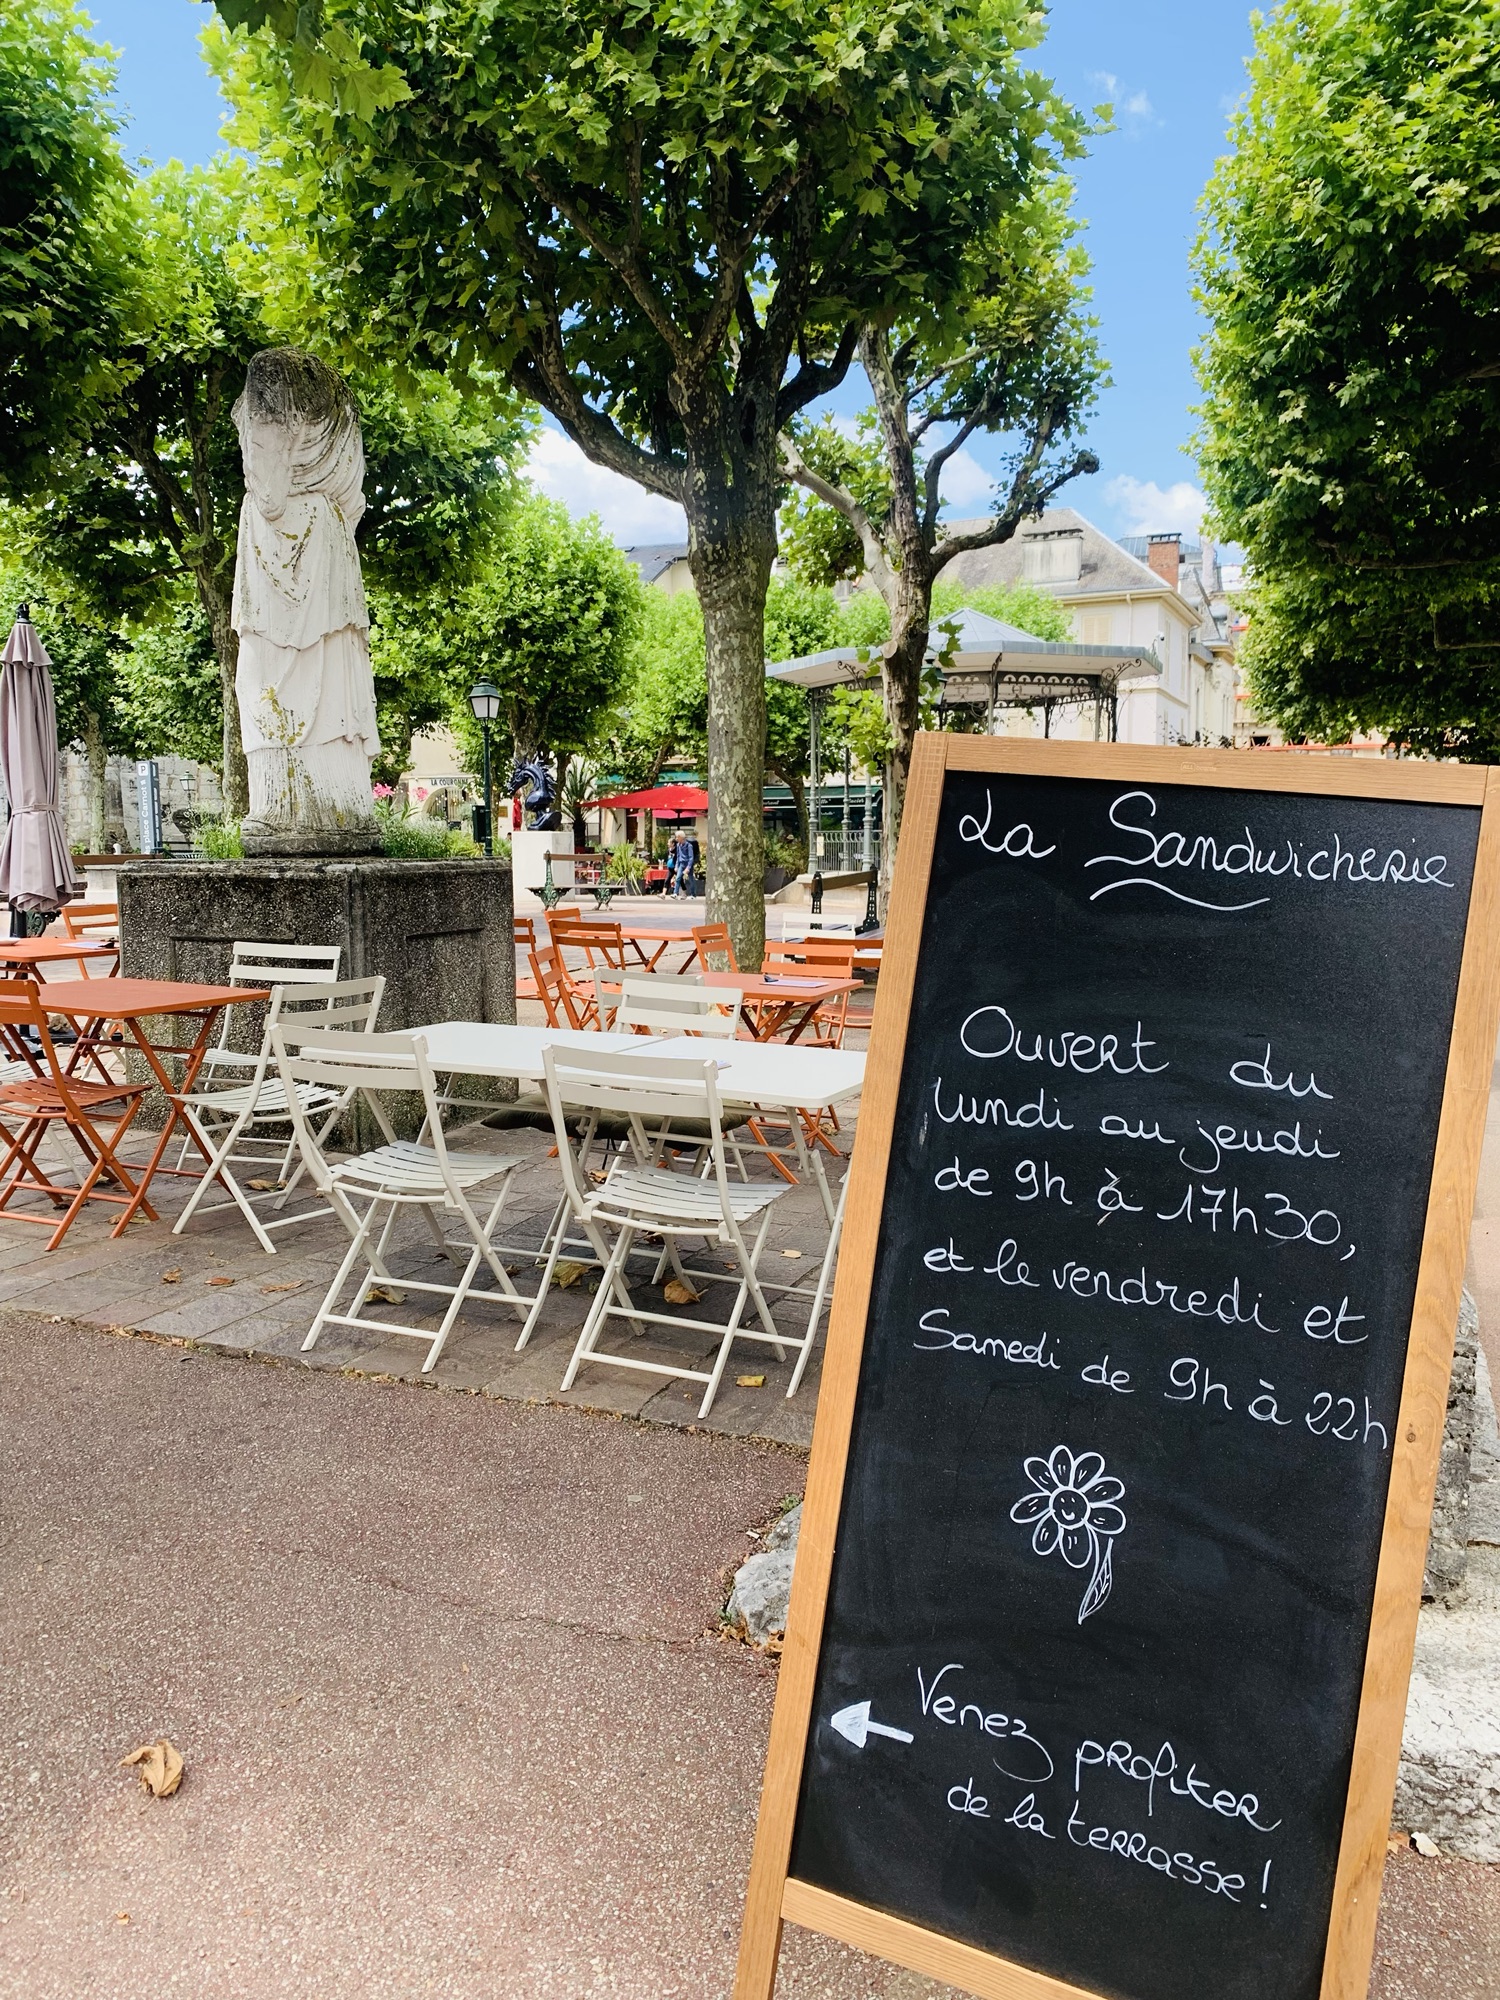 La Sandwicherie
Ouvert du
lundi au jeudi
de 9h à 17h30,
et le vendredi et
Samedi de 9h à 22h
Venez profiter
de la terrasse!
LA COURONNE
P
place Carnot